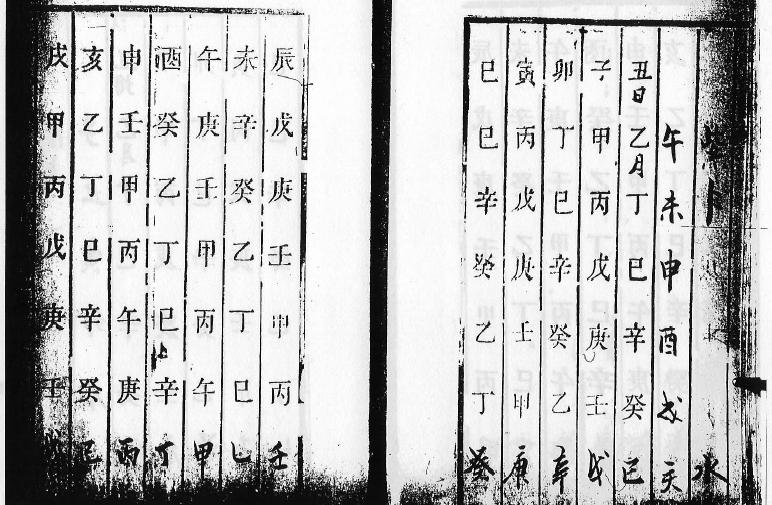 水
午未申酉戌亥
丑日乙月丁巳辛癸巳
子甲丙戊庚壬戊
卯丁巳辛癸乙辛
寅丙戊庚壬甲庚
巳巳辛癸乙丁癸
辰戊庚壬甲丙壬
未辛癸乙丁巳乙
午庚壬甲丙午甲
酉癸乙丁巳辛丁
申壬甲丙午庚丙
亥乙丁巳辛癸己
戌甲丙戊庚壬